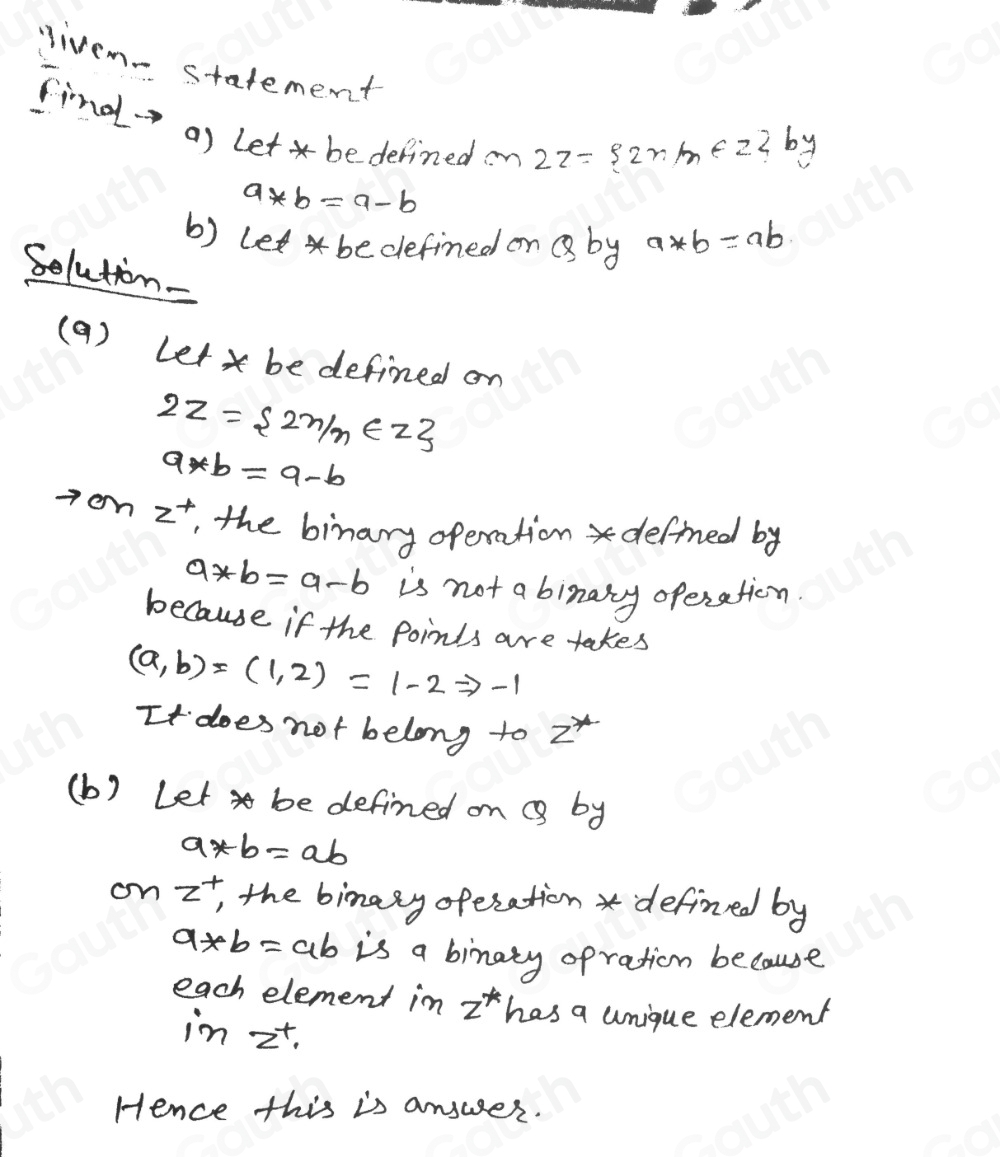 Given-
statement
Find →
a) Let * be defined on 2Z = {2n/n ∈ Z} by
a*b = a-b
b) Let * be defined on Q by a*b = ab.
Solution-
(a)
Let * be defined on
2Z = {2n/n ∈ Z}
a*b = a-b
→ on Z⁺, the binary operation * defined by
a*b = a-b is not a binary operation.
because if the points are takes
(a,b) = (1,2) = 1-2 ⇒ -1
It does not belong to Z*
(b) Let * be defined on Q by
a*b = ab
on Z⁺, the binary operation * defined by
a*b = ab is a binary opration because
each element in Z* has a unique element
in Z⁺.
Hence this is answer.